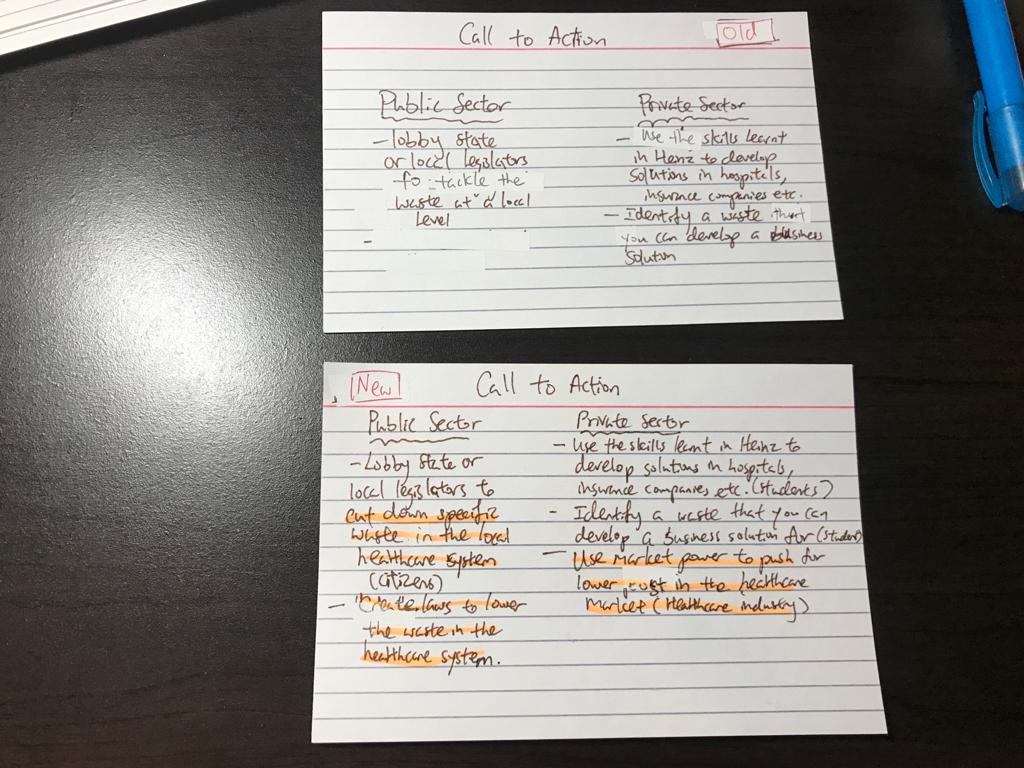 Call to Action
Old
Public Sector
- lobby state
or local legislators
to tackle the
waste at a local
level
-
Private Sector
- Use the skills learnt
in Heinz to develop
solutions in hospitals,
insurance companies etc.
- Identify a waste that
you can develop a business
solution
New
Call to Action
Public Sector
- Lobby state or
local legislators to
cut down specific
waste in the local
healthcare system
(citizens)
- Create laws to lower
the waste in the
healthcare system.
Private Sector
- Use the skills learnt in Heinz to
develop solutions in hospitals,
insurance companies etc. (students)
- Identify a waste that you can
develop a business solution for (student)
- Use market power to push for
lower cost in the healthcare
market (Healthcare industry)